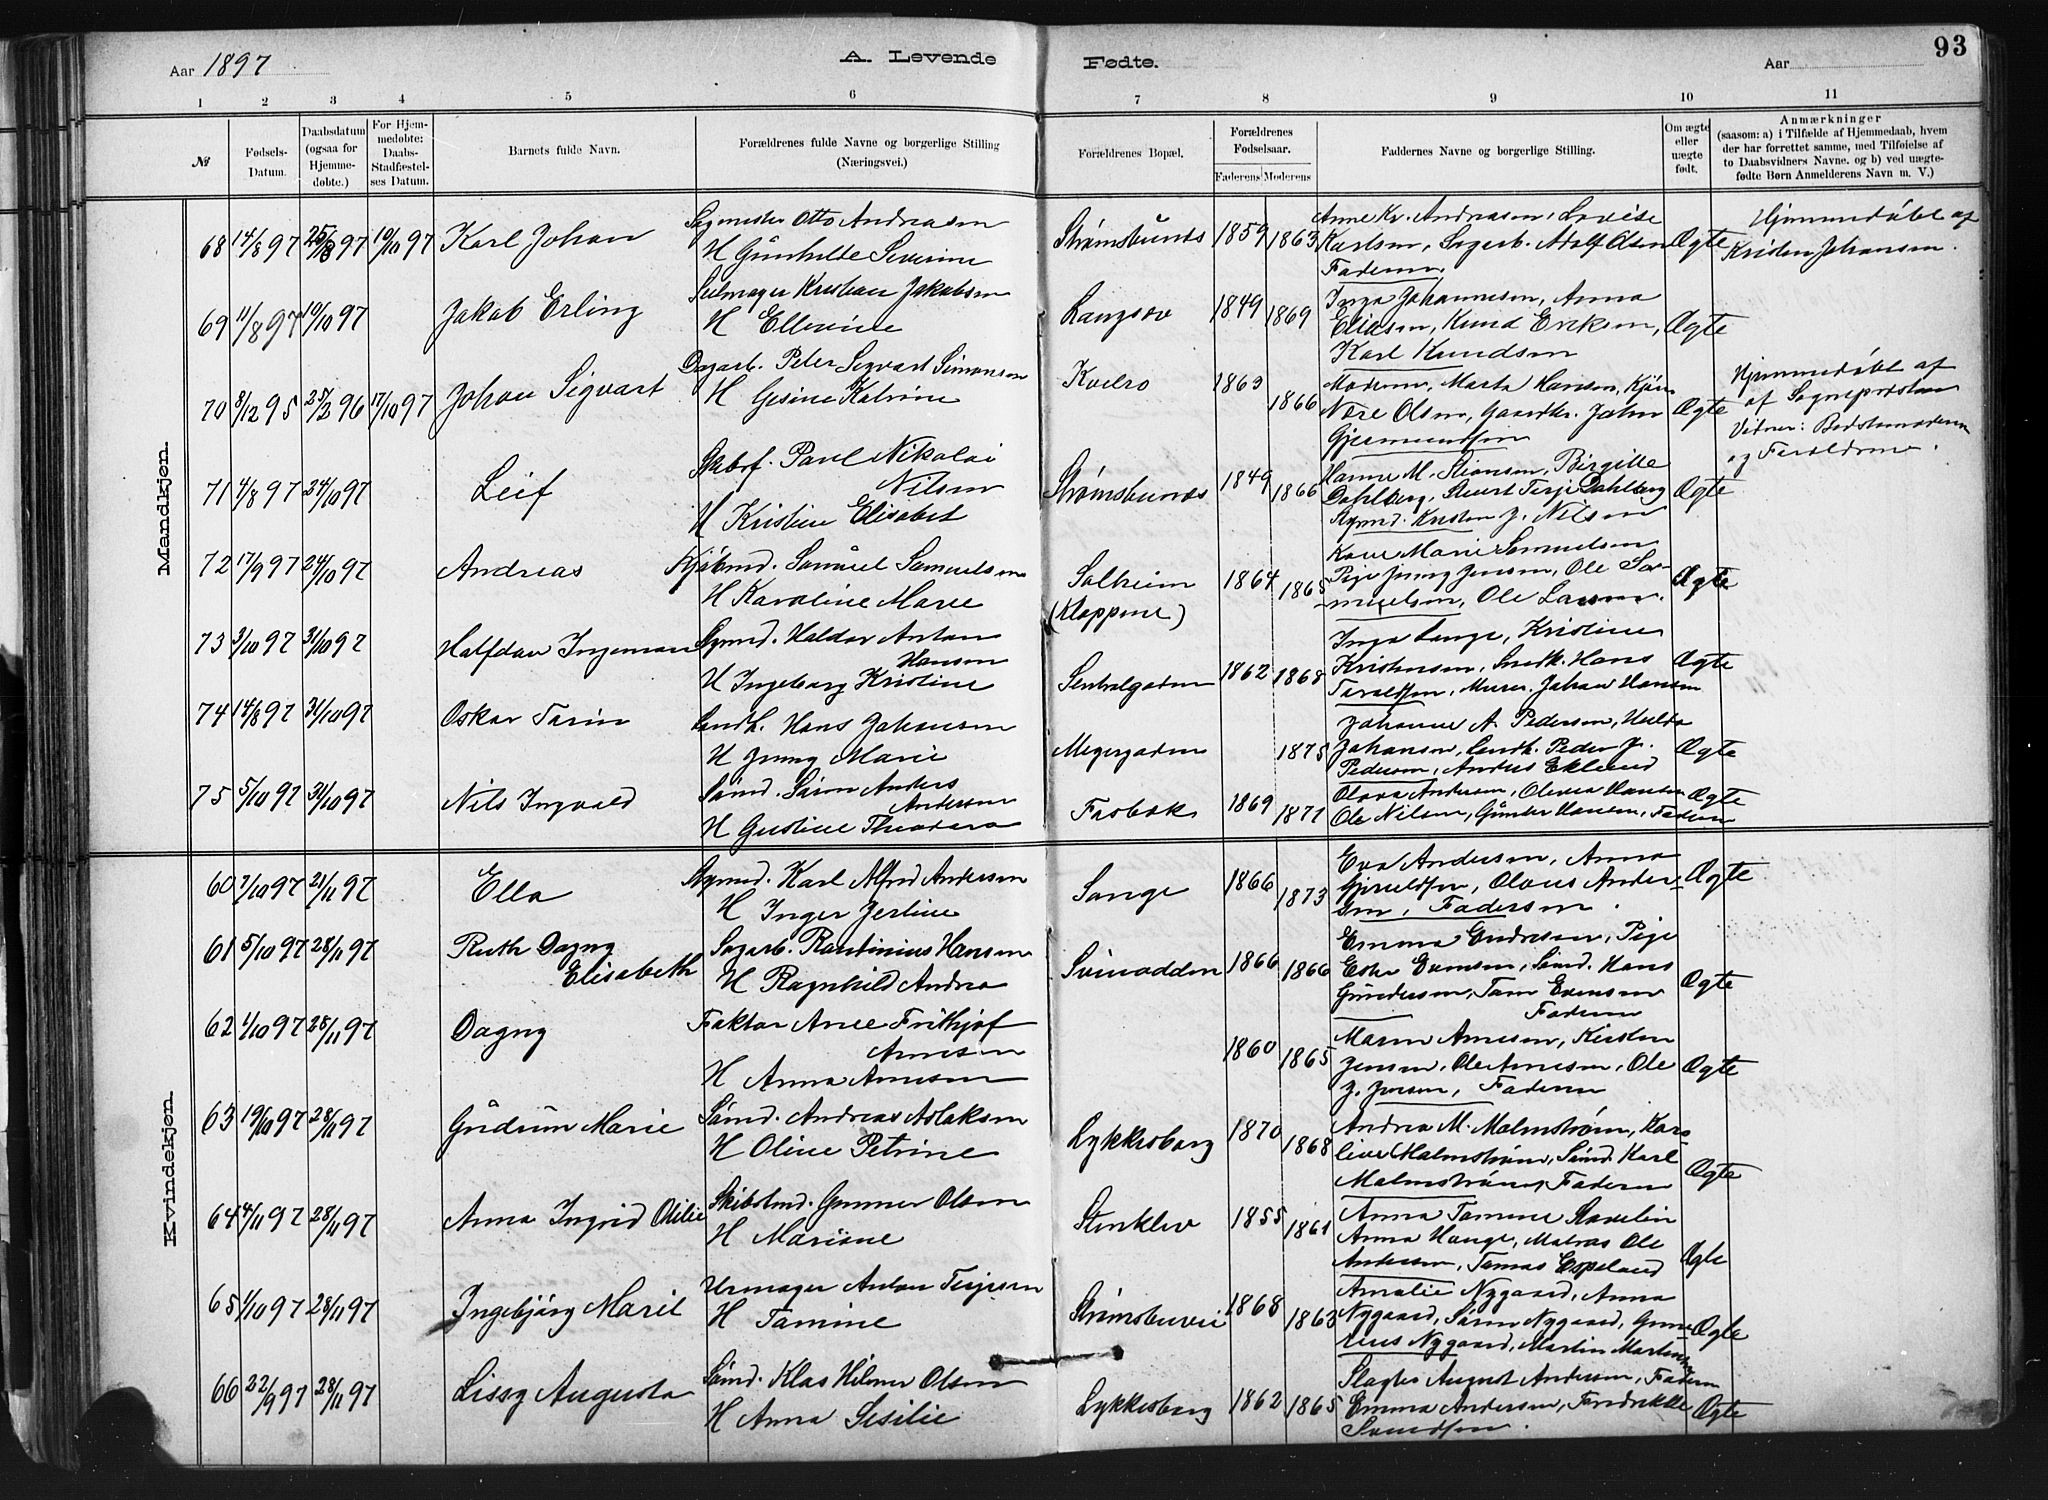 Aar 1897
A. Levende Fødte.
Aar
93
1 2 3 4 5 6 7 8 9 10 11
№
Fødsels-Datum.
Daabsdatum (ogsaa for Hjemme-døbte.)
For Hjem-medøbte: Daabs-Stadfæstel-ses Datum.
Barnets fulde Navn.
Forældrenes fulde Navne og borgerlige Stilling (Næringsvei.)
Forældrenes Bopæl.
Forældrenes Fødselsaar.
Faderens Moderens
Faddernes Navne og borgerlige Stilling.
Om ægte eller uægte født.
Anmærkninger
(saasom: a) i Tilfælde af Hjemmedaab, hvem
der har forrettet samme, med Tilføielse af
to Daabsvidners Navne. og b) ved uægte-
fødte Børn Anmelderens Navn m. V.)
Mandkjøn.
68 14/8 97 25/8 97 10/10 97 Karl Johan
Sagmester Otto Andreasen
H Gunhilde Severine
Strømsbunds 1859 1863
Anne Kr. Andreasen, Lovise
Karlsen, Sagarb. Adolf Olsen
Faderen
Ægte
Hjemmedøbt af
Kristen Johansen.
69 11/8 97 10/10 97 Jakob Erling
Seilmager Kristian Jakobsen
H Ellevine
Langsæv 1849 1869
Inga Johannesen, Anna
Eliasen, Knud Eriksen,
Karl Knudsen
Ægte
70 8/12 95 25/2 96 17/10 97 Johan Sigvart
Dagarb. Peter Sigvart Simonsen
H Gesine Katrine
1863 1866
Moderen, Marta Hansen,
Nore Olsen, Gaardbr. John
Gjermundsen
Ægte
Hjemmedøbt af
af Sognepræsten
Vidner: Bedstemoderen
og Forældrene.
71 4/8 97 24/10 97 Leif
Skibsf. Paul Nikolai
Nilsen
H Kristine Elisabet
Strømsbunds 1849 1866
Hanne M. Simonsen, Birgitte
Dahlberg, Stuert Terje Dahlberg
Styrmd. Kristen J. Nilsen
Ægte
72 17/9 97 24/10 97 Andreas
Kjøbmd. Samuel Samuelsen
H Karoline Marie
Solheim
(Kloppene)
1864 1865
Karen Marie Samuelsen
Pige Jenny Jensen, Ole Sa-
muelsen, Ole Larsen.
Ægte
73 3/10 97 31/10 97 Halfdan Ingeman
Styrmd. Haldor Anton
Hansen
H Ingeborg Kristine
Sentralgaden 1862 1868
Inga Lange, Kristine
Kristensen, Snedk. Hans
Taraldsen, Murer. Johan Hansen
Ægte
74 14/8 97 31/10 97 Oskar Tarin
Landh. Hans Johansen
H Jenny Marie
Meyergaden 1875
Johanne A. Pedersen, Hulda
Johansen, Landh. Peder J.
Pedersen, Anders Eklund
Ægte
75 5/10 97 31/10 97 Nils Ingvald
Sømd. Søren Anders
Andersen
H Gustine Theodora
Færbæk 1869 1871
Olava Andersen, Olevia Hansen
Ole Nilsen, Gunder Hansen, Faderen
Ægte
Kvindekjøn.
60 7/10 97 21/11 97 Ella
Styrmd. Karl Alfred Andersen
H Inger Jertine
Songe 1866 1873
Eva Andersen, Anna
Gjeruldsen, Olaus Ander-
sen, Faderen.
Ægte
61 5/10 97 28/11 97 Ruth Dagny
Elisabeth
Sagarb. Rantinius Hansen
H Ragnhild Andrea
Svinodden 1866 1866
Emma Endresen, Pige
Ester Evensen, Sømd. Hans
Gundersen, Tom Evensen
Faderen
Ægte
62 1/10 97 28/11 97 Dagny
Faktor Arne Frithjof
Arnesen
H Anna Arnesen
1860 1865
Maren Arnesen, Kirsten
Jensen, Ole Arnesen, Ole
J. Jensen, Faderen
Ægte
63 19/10 97 28/11 97 Gudrun Marie
Sømd. Andreas Aslaksen
H Oline Petrine
Lykkesborg 1870 1868
Andrea M. Malmstrøm, Karo-
line Malmstrøm, Sømd. Karl
Malmstrøm, Faderen
Ægte
64 4/11 97 28/11 97 Anna Ingrid Otilie
Skibstmd. Gunner Olsen
H Mariane
Stenklev 1855 1861
Anna Tomine Stavelin
Anna Hauge, Matros Ole
Andersen, Tomas Espeland
Ægte
65 1/10 97 28/11 97 Ingebjørg Marie
Urmager Anton Terjesen
H Tomine
Strømsbuvei 1868 1863
Amalie Nygaard, Anna
Nygaard, Søren Nygaard, Gune-
rius Nygaard, Martin Martinsen
Ægte
66 22/9 97 28/11 97 Lissy Augusta
Sømd. Klas Hilmer Olsen
H Anna Sesilie
Lykkesborg 1862 1865
Slagter August Andersen, Faderen
Emma Andersen, Fredrikke
Svendsen.
Ægte